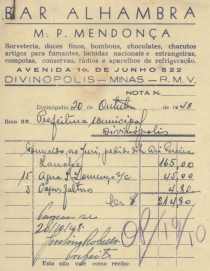 BAR ALHAMBRA
M. P. MENDONÇA
Sorveteria, doces finos, bombons, chocolates, charutos
artigos para fumantes, bebidas nacionais e estrangeiras,
compotas, conservas, rádios e aparelhos de refrigeração.
AVENIDA 1o. DE JUNHO 522
DIVINÓPOLIS — MINAS — R. M. V.
NOTA N.
Divinópolis, 20 de Outubro de 1948
Ilmo. Snr. Prefeitura Municipal
Divinópolis
Fornecido, ao Juri, pedido do
Lanches 165,00
15 45,00
3 4,80
Cr $ 214,80
Pague-se
20/10/48
Prefeito
Esta não vale como recibo